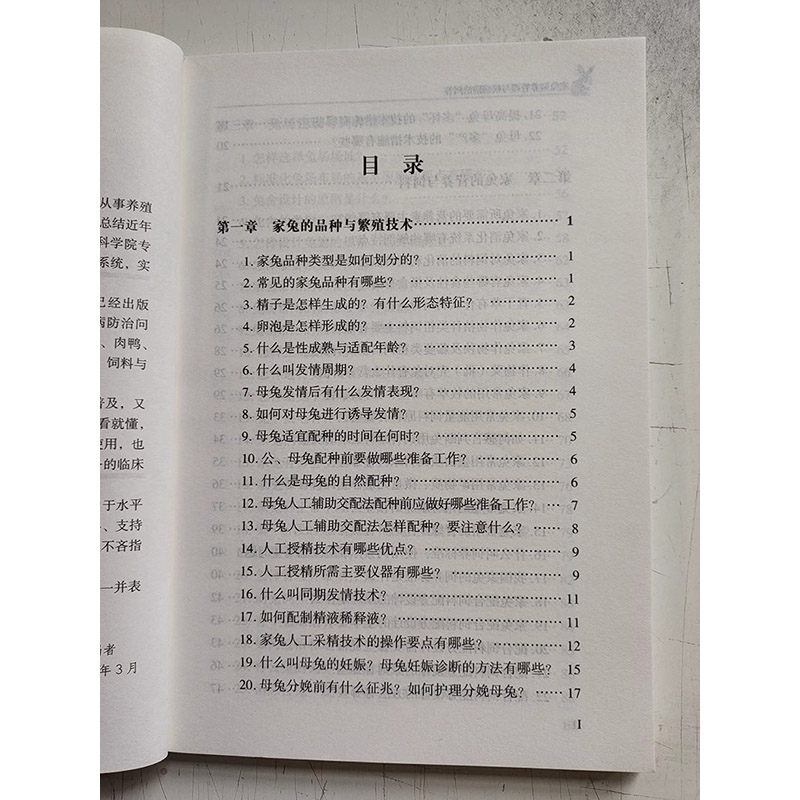 从事养殖
总结近年
科学院专
系统，实
已经出版
病防治问
、肉鸭、
饲料与
普及，又
看就懂，
使用，也
的临床
于水平
、支持
不吝指
一并表
者
年3月
目 录
第一章 家兔的品种与繁殖技术 1
1. 家兔品种类型是如何划分的？ 1
2. 常见的家兔品种有哪些？ 1
3. 精子是怎样生成的？有什么形态特征？ 2
4. 卵泡是怎样形成的？ 2
5. 什么是性成熟与适配年龄？ 3
6. 什么叫发情周期？ 4
7. 母兔发情后有什么发情表现？ 4
8. 如何对母兔进行诱导发情？ 5
9. 母兔适宜配种的时间在何时？ 5
10. 公、母兔配种前要做哪些准备工作？ 6
11. 什么是母兔的自然配种？ 6
12. 母兔人工辅助交配法配种前应做好哪些准备工作？ 7
13. 母兔人工辅助交配法怎样配种？要注意什么？ 8
14. 人工授精技术有哪些优点？ 9
15. 人工授精所需主要仪器有哪些？ 9
16. 什么叫同期发情技术？ 11
17. 如何配制精液稀释液？ 11
18. 家兔人工采精技术的操作要点有哪些？ 12
19. 什么叫母兔的妊娠？母兔妊娠诊断的方法有哪些？ 15
20. 母兔分娩前有什么征兆？如何护理分娩母兔？ 17
I